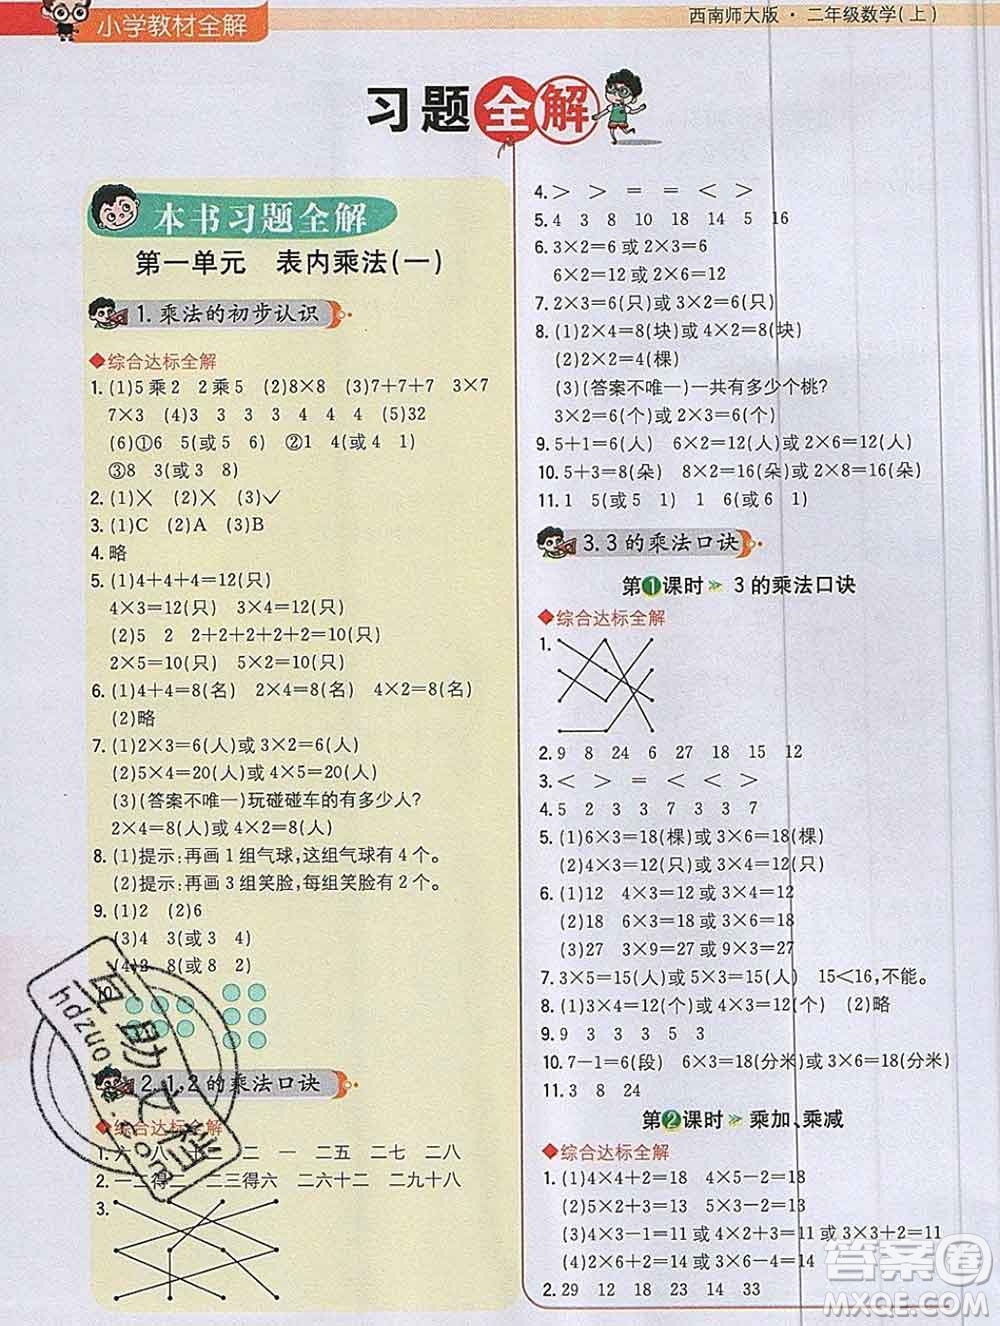 小学教材全解
西南师大版·二年级数学(上)
习题全解
本书习题全解
第一单元 表内乘法(一)
1.乘法的初步认识
◆综合达标全解
1. (1)5乘2 2乘5 (2)8×8 (3)7+7+7 3×7
7×3 (4)3 3 3 3 4 4 4 (5)32
(6)①6 5(或5 6) ②1 4(或4 1)
③8 3(或3 8)
2. (1)× (2)× (3)✓
3. (1)C (2)A (3)B
4. 略
5. (1)4+4+4=12(只)
4×3=12(只) 3×4=12(只)
(2)5 2 2+2+2+2+2=10(只)
2×5=10(只) 5×2=10(只)
6. (1)4+4=8(名) 2×4=8(名) 4×2=8(名)
(2)略
7. (1)2×3=6(人)或3×2=6(人)
(2)5×4=20(人)或4×5=20(人)
(3)(答案不唯一)玩碰碰车的有多少人?
2×4=8(人)或4×2=8(人)
8. (1)提示:再画1组气球,这组气球有4个。
(2)提示:再画3组笑脸,每组笑脸有2个。
9. (1)2 (2)6
(3)4 3(或3 4)
(4)2 8(或8 2)
2. 1,2的乘法口诀
综合达标全解
1. 六 八 二 二五 二七 二八
2. 一二得二 二三得六 二六十二 二九十八
3.
4. > > = = < >
5. 4 3 8 10 18 14 5 16
6. 3×2=6或2×3=6
6×2=12或2×6=12
7. 2×3=6(只)或3×2=6(只)
8. (1)2×4=8(块)或4×2=8(块)
(2)2×2=4(棵)
(3)(答案不唯一)一共有多少个桃?
3×2=6(个)或2×3=6(个)
9. 5+1=6(人) 6×2=12(人)或2×6=12(人)
10. 5+3=8(朵) 8×2=16(朵)或2×8=16(朵)
11. 1 5(或5 1) 1 6(或6 1)
3. 3的乘法口诀
第1课时 3的乘法口诀
◆综合达标全解
1.
2. 9 8 24 6 27 18 15 12
3. < > = < < >
4. 5 2 3 7 3 3 3 7
5. (1)6×3=18(棵)或3×6=18(棵)
(2)4×3=12(只)或3×4=12(只)
6. (1)12 4×3=12或3×4=12
(2)18 6×3=18或3×6=18
(3)27 3×9=27或9×3=27
7. 3×5=15(人)或5×3=15(人) 15<16,不能。
8. (1)3×4=12(个)或4×3=12(个) (2)略
9. 9 3 3 3 5 3
10. 7-1=6(段) 6×3=18(分米)或3×6=18(分米)
11. 3 8 24
第2课时 乘加、乘减
◆综合达标全解
1. (1)4×4+2=18 4×5-2=18
(2)5×2+3=13 5×3-2=13
(3)4×3-1=11或4×2+3=11或3×3+2=11
(4)2×6+2=14或3×4+2=14或3×5-1=14
2. 29 12 13 24 14 33
互助文科
hdzuoyewang.com
答案圈
MXQE.COM